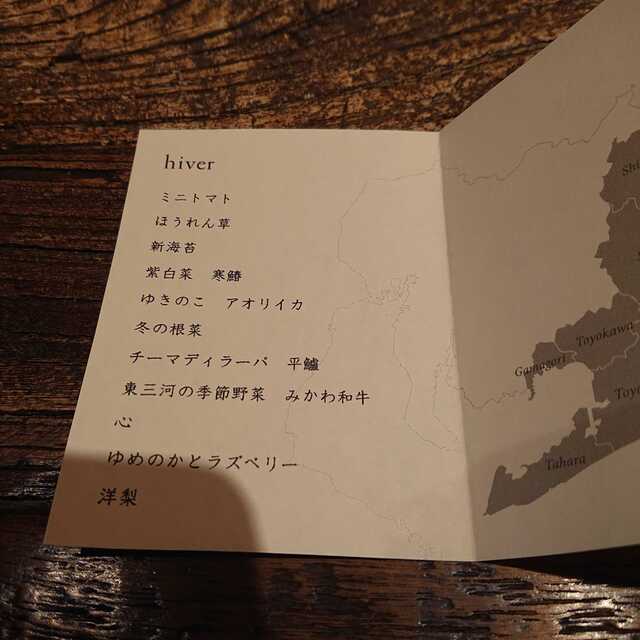 hiver
ミニトマト
ほうれん草
新海苔
紫白菜　寒鰆
ゆきのこ　アオリイカ
冬の根菜
チーマディラーパ　平鱸
東三河の季節野菜　みかわ和牛
心
ゆめのかとラズベリー
洋梨
Shi
Toyokawa
Gamagori
Toyo
Tahara